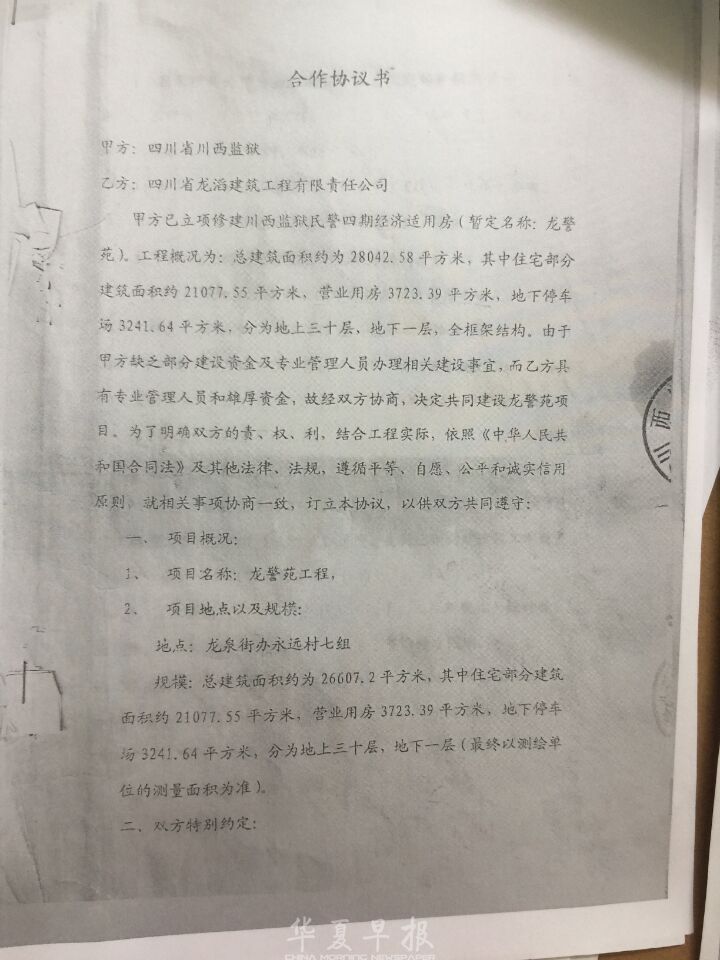 合作协议书
甲方：四川省川西监狱
乙方：四川省龙滔建筑工程有限责任公司
甲方已立项修建川西监狱民警四期经济适用房（暂定名称：龙警
苑）。工程概况为：总建筑面积约为 28042.58 平方米，其中住宅部分
建筑面积约 21077.55 平方米，营业用房 3723.39 平方米，地下停车
场 3241.64 平方米，分为地上三十层、地下一层，全框架结构。由于
甲方缺乏部分建设资金及专业管理人员办理相关建设事宜，而乙方具
有专业管理人员和雄厚资金，故经双方协商，决定共同建设龙警苑项
目。为了明确双方的责、权、利，结合工程实际，依照《中华人民共
和国合同法》及其他法律、法规，遵循平等、自愿、公平和诚实信用
原则，就相关事项协商一致，订立本协议，以供双方共同遵守：
一、 项目概况：
1、 项目名称：龙警苑工程，
2、 项目地点以及规模：
地点：龙泉街办永远村七组
规模：总建筑面积约为 26607.2 平方米，其中住宅部分建筑
面积约 21077.55 平方米，营业用房 3723.39 平方米，地下停车
场 3241.64 平方米，分为地上三十层，地下一层（最终以测绘单
位的测量面积为准）。
二、双方特别约定：
西
华夏早报
CHINA MORNING NEWSPAPER